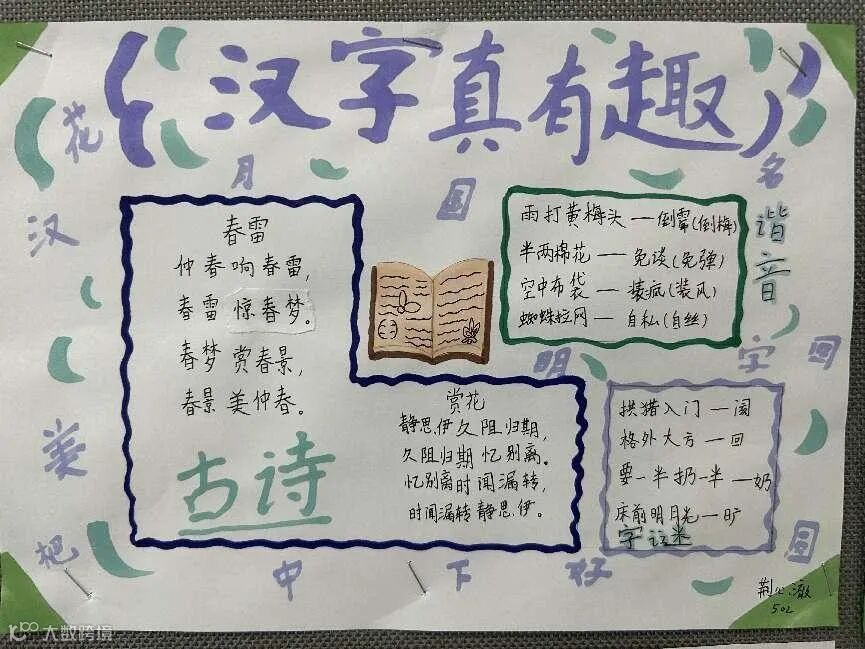 汉字真有趣
花
月
国
名
汉
谐音
春雷
仲春响春雷,
春雷惊春梦。
春梦赏春景,
春景美仲春。
古诗
赏花
静思伊久阻归期,
久阻归期忆别离。
忆别离时闻漏转,
时闻漏转静思伊。
雨打黄梅头—倒霉(倒梅)
半两棉花—免谈(免弹)
空中布袋—装疯(装风)
蜘蛛拉网—自私(自丝)
明
字
回
门一
格外大方一回
要一半扔一半一奶
床前明月光一旷
字谜
美
把
中
下
好
502
大数跨境